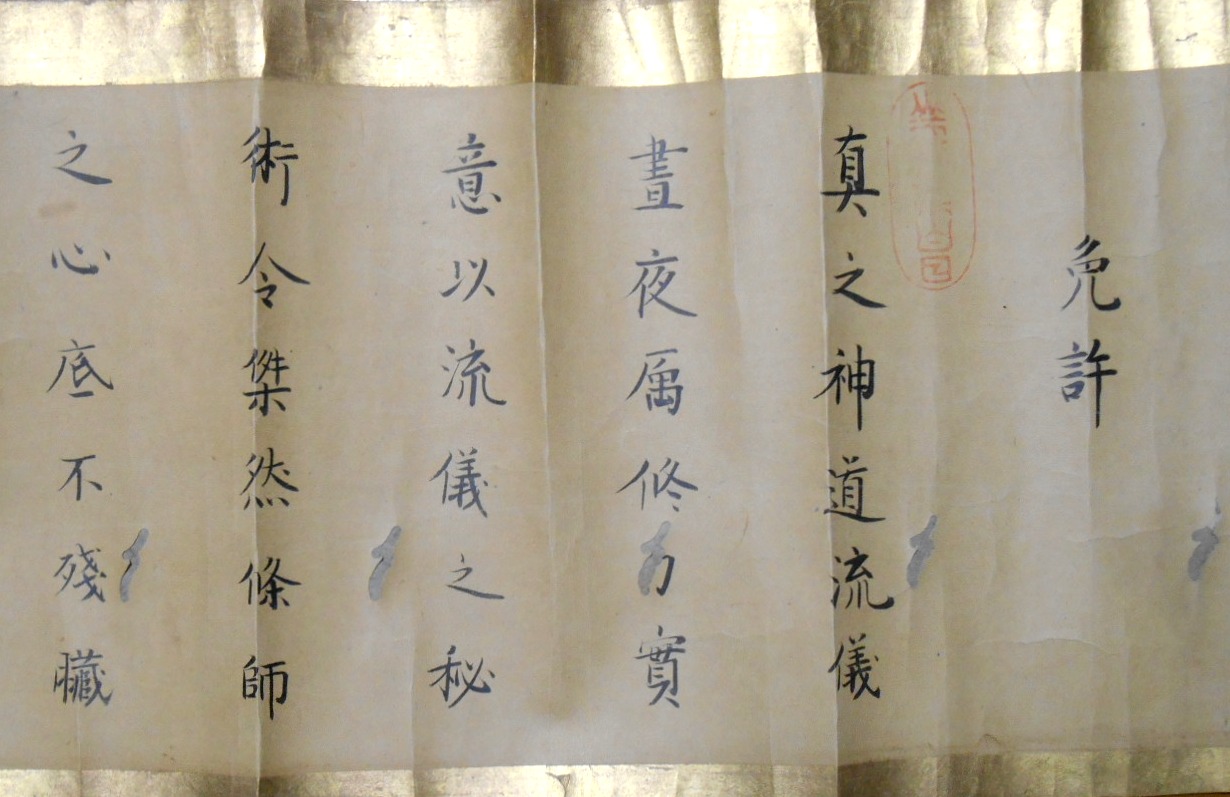 免許
真之神道流儀
晝夜厲修 實
意以流儀之秘
術令傑然條師
之心底不殘臓